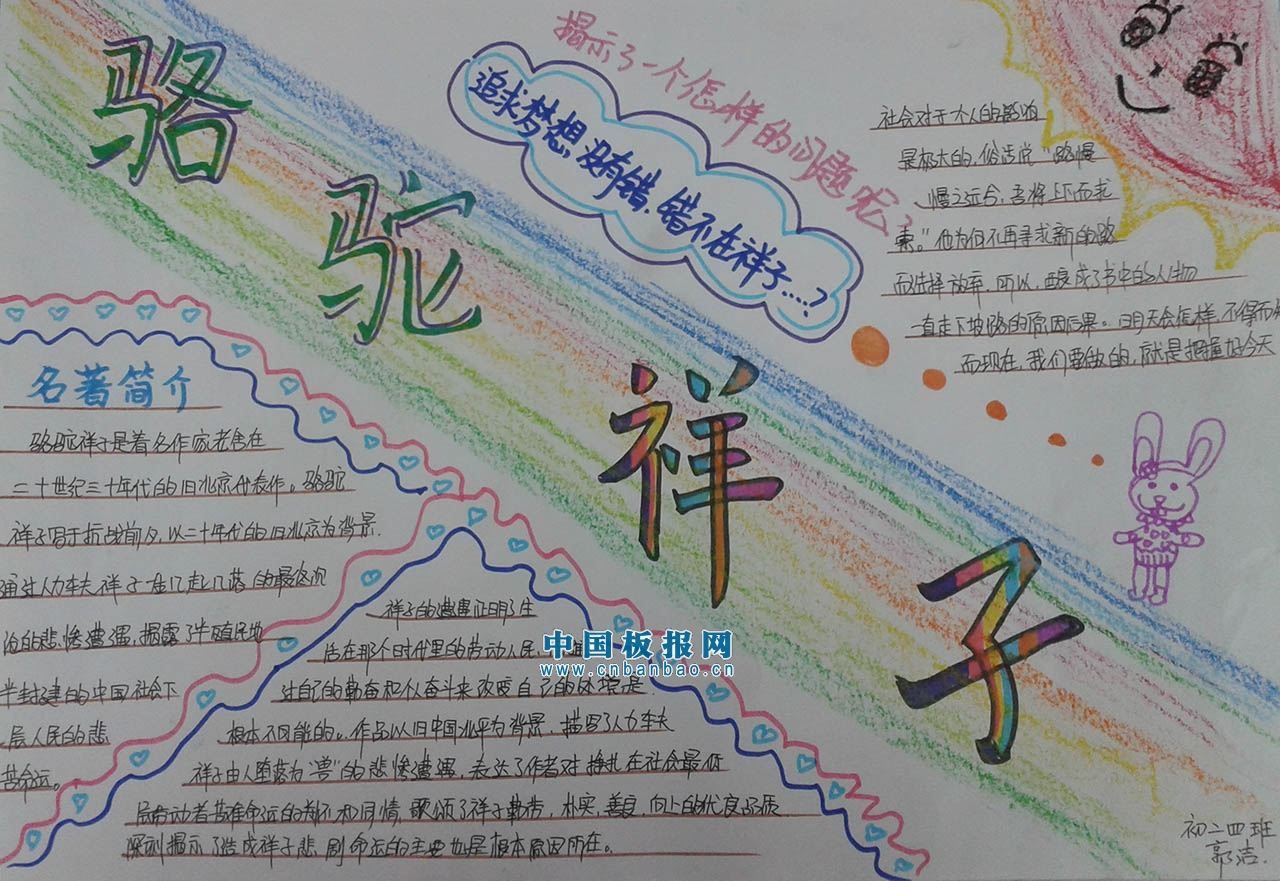 骆驼祥子
揭示了一个怎样的问题呢?
追求梦想,没有错,错不在祥子……?
社会对于个人的影响
是极大的,俗话说“路慢
慢之远兮,吾将上下而求
索。”他为何不再寻求新的路
而选择放弃,所以,
成了书中的人物
一直走下坡路的原因后果。明天会怎样,不得而
而现在,我们要做的,就是把握好今天
名著简介
骆驼祥子是著名作家老舍在
二十世纪三十年代的旧北京代表作。骆驼
祥子写于抗战前夕,以二十年代的旧北京为背景.
通过人力车夫祥子
起
落的最终沉
沦的悲惨遭遇,揭露了半殖民地
半封建的中国社会下
层人民的悲
苦命运。
祥子的遭遇证明了生
活在那个时代里的劳动人民
过自己的勤奋和个人奋斗来改变自己的处境是
根本不可能的。作品以旧中国北平为背景,描写了人力车夫
祥子由人堕落为“兽”的悲惨遭遇,表达了作者对挣扎在社会最低
层劳动者苦难命运的
和同情,歌颂了祥子勤劳,朴实,善良,向上的优良品质
深刻揭示了造成祥子悲剧命运的主要也是根本原因所在。
中国板报网
www.cnbanbao.cn
初二四班
郭洁.